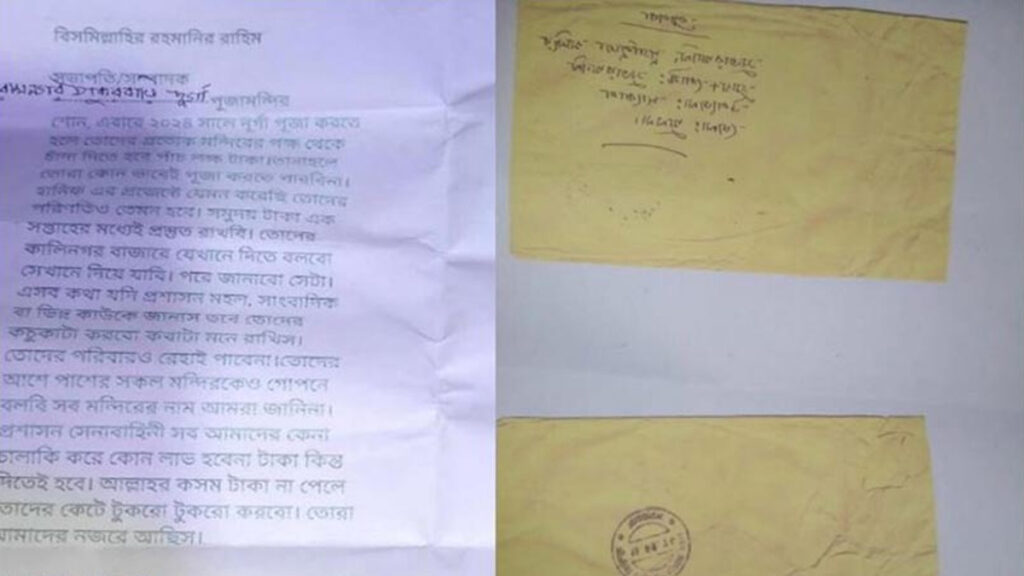 বিসমিল্লাহির রহমানির রাহিম
সভাপতি/সম্পাদক
দুর্গা পূজামন্দির
শোন, এবারে ২০২৪ সালে দূর্গা পূজা করতে
হলে তোদের প্রত্যেক মন্দিরের পক্ষ থেকে
চাঁদা দিতে হবে পাঁচ লক্ষ টাকা।তানাহলে
তোরা কোন ভাবেই পূজা করতে পারবিনা।
হানিফ এর প্রজেক্টে যেমন করেছি তোদের
পরিণতিও তেমন হবে। সমুদয় টাকা এক
সপ্তাহের মধ্যেই প্রস্তুত রাখবি। তোদের
কালিনগর বাজারে যেখানে দিতে বলবো
সেখানে নিয়ে যাবি। পরে জানাবো সেটা।
এসব কথা যদি প্রশাসন মহল, সাংবাদিক
বা ভিন্ন কাউকে জানাস তবে তোদের
কচুকাটা করবো কথাটা মনে রাখিস।
তোদের পরিবারও রেহাই পাবেনা।তোদের
আশে পাশের সকল মন্দিরকেও গোপনে
বলবি সব মন্দিরের নাম আমরা জানিনা।
প্রশাসন সেনাবাহিনী সব আমাদের কেনা
চালাকি করে কোন লাভ হবেনা টাকা কিন্তু
দিতেই হবে। আল্লাহর কসম টাকা না পেলে
তোদের কেটে টুকরো টুকরো করবো। তোরা
আমাদের নজরে আছিস।